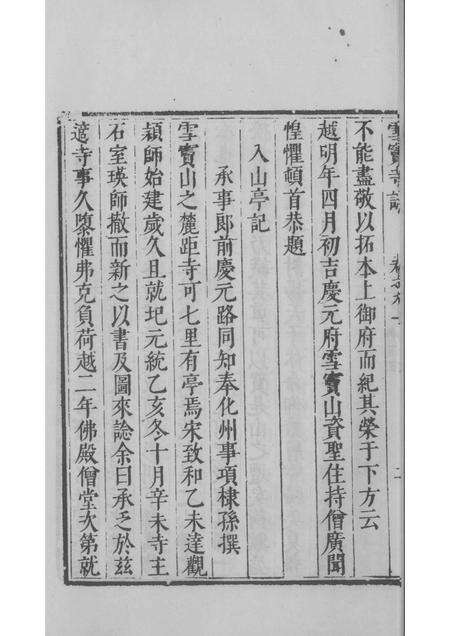 雪竇寺誌
不能盡敬以拓本上御府而紀其榮于下方云
越明年四月初吉慶元府雪竇山資聖住持僧廣聞
惶懼頓首恭題
入山亭記
承事郎前慶元路同知奉化州事項棣孫撰
雪竇山之麓距寺可七里有亭焉宋致和乙未達觀
穎師始建歲久且就圯元統乙亥冬十月辛未寺主
石室瑛師撤而新之以書及圖來諗余曰承乏於茲
蘧寺事久隳懼弗克負荷越二年佛殿僧堂次第就